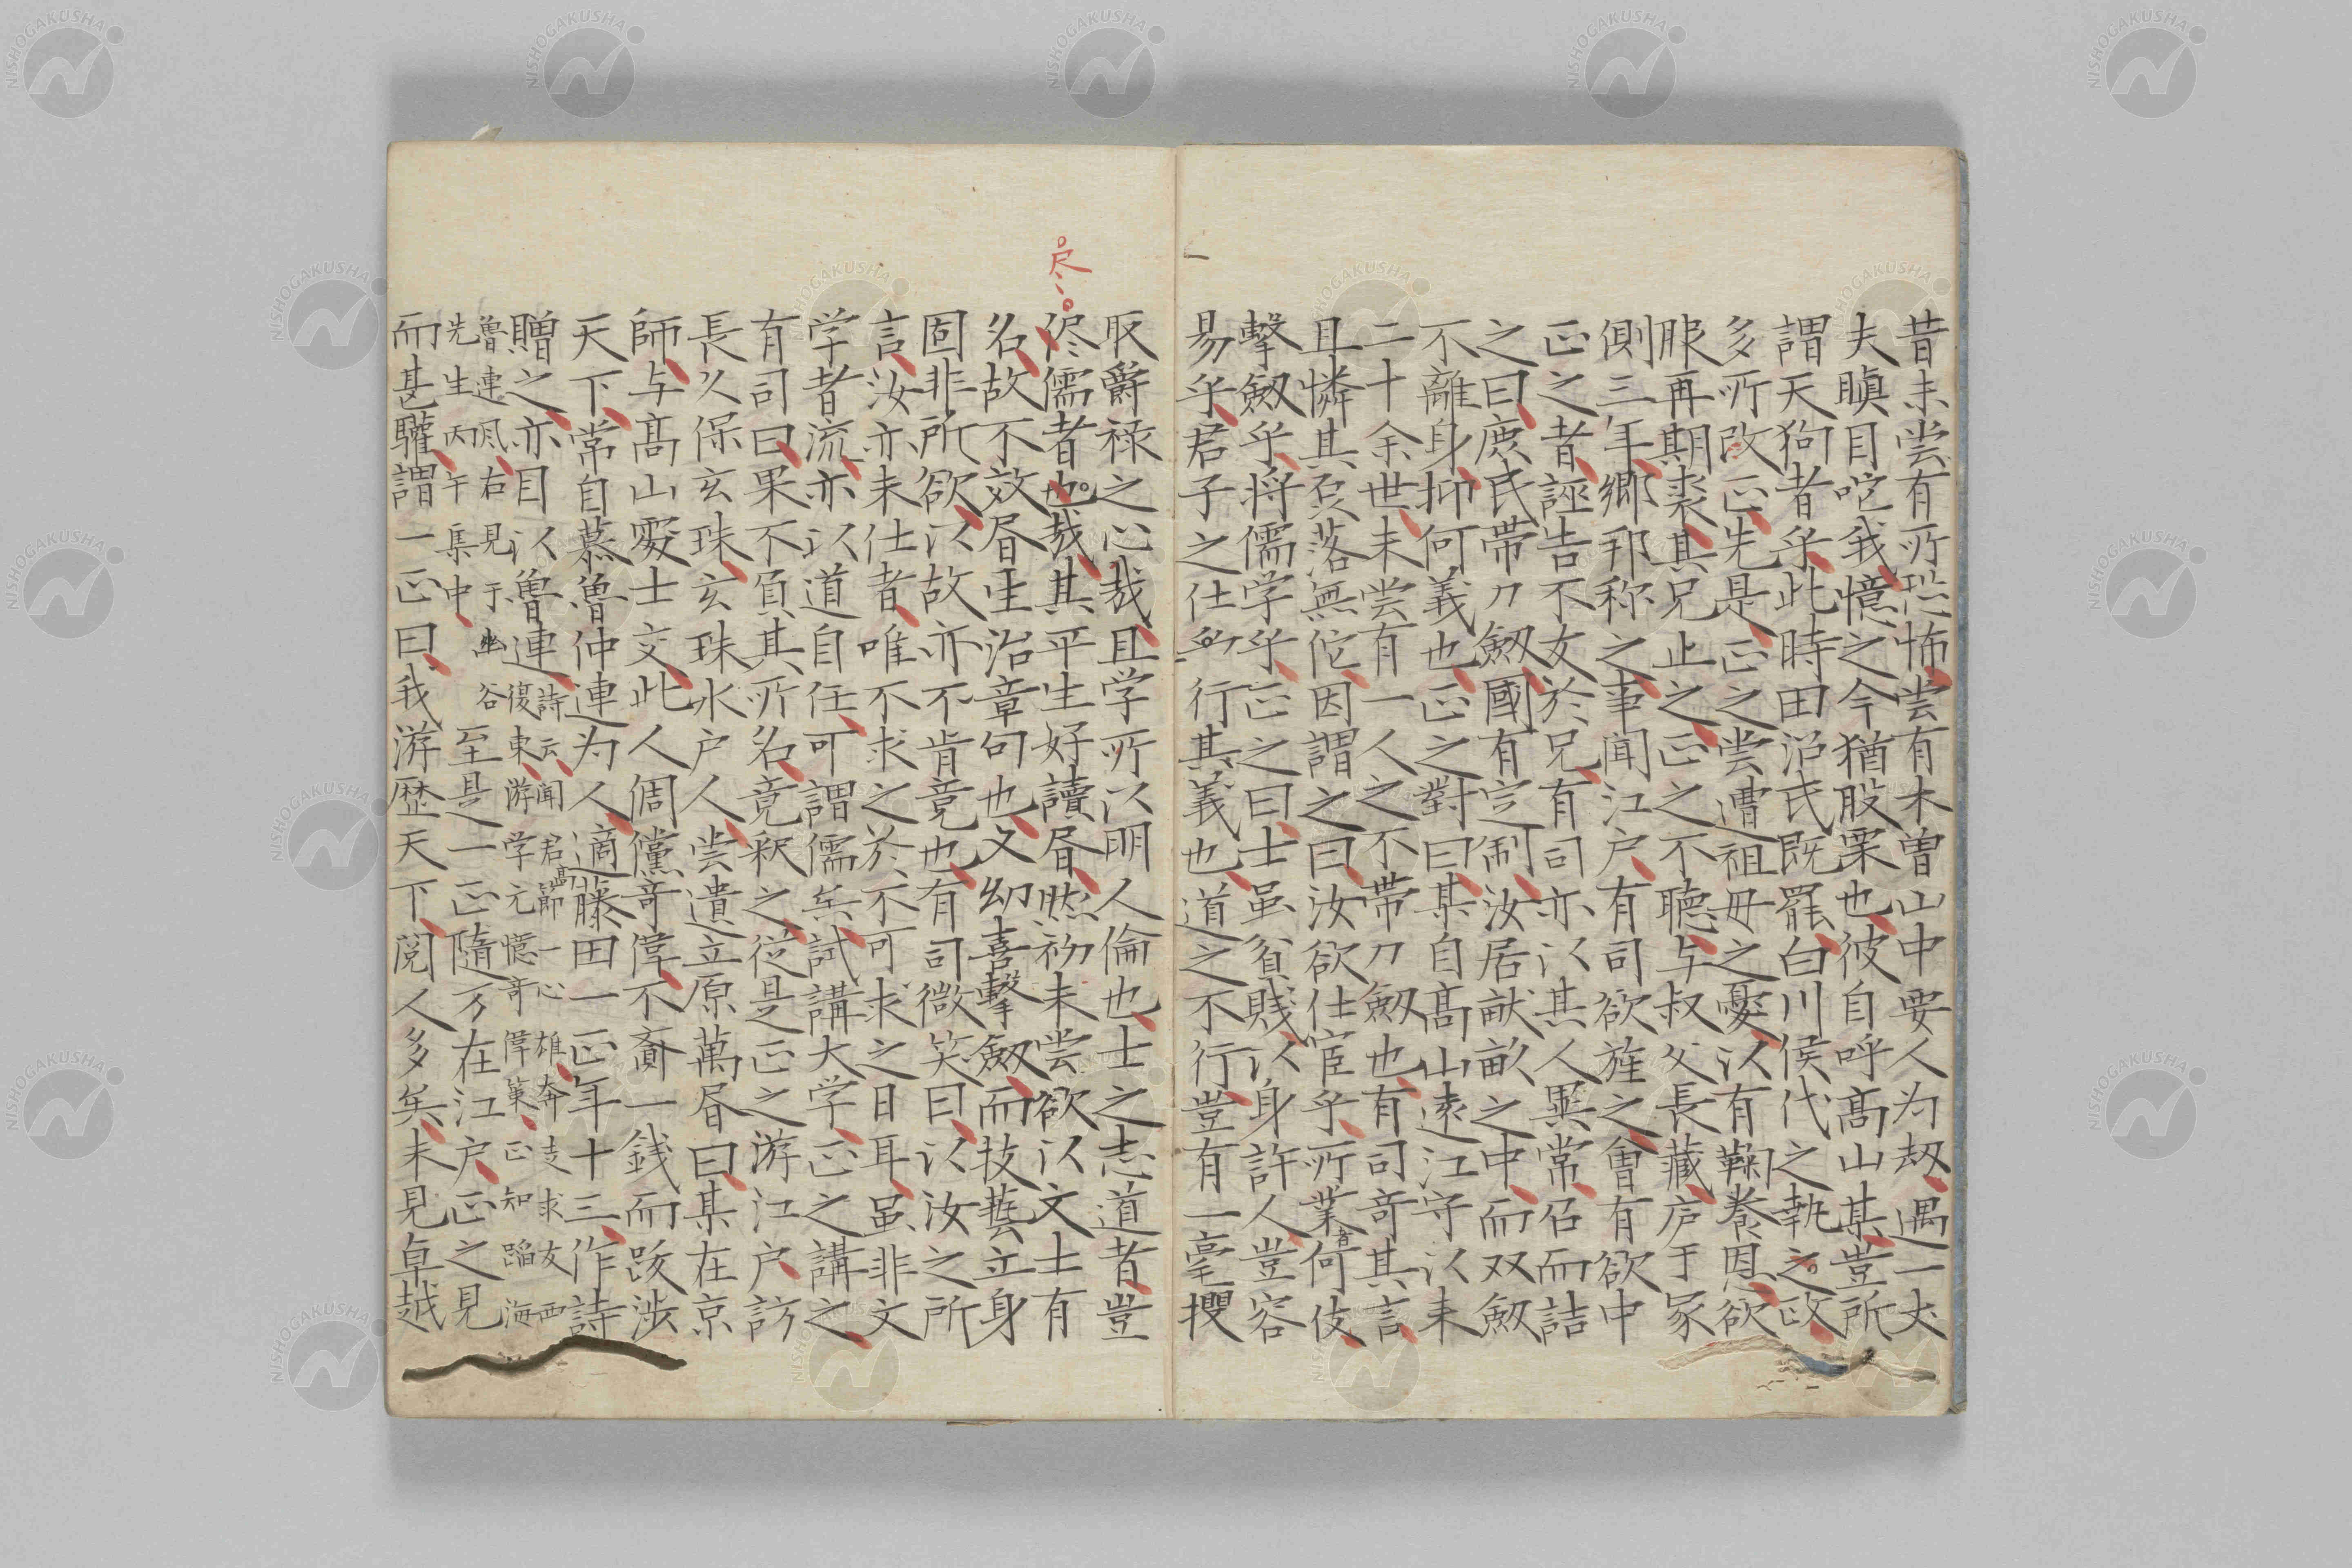 昔未尝有所恐怖尝有木曽山中要人为刼遇一犬
夫瞋目咜我憶之今猶股栗也彼自呼髙山某豈所
謂天狗者乎此時田沼氏既罷白川侯代之執之政
多所改正先是正之尝遭祖毋之憂以有鞠養恩欲
服再期喪其兄止之正之不聴与叔父長蔵庐于冢
側三年郷邦称之事闻江户有司欲旌之會有欲中
正之者誣告不友於兄有司亦以其人異常召而詰
之曰庶民帯刀劔國有定制汝居畎畝之中而双劔
不離身抑何義也正之對曰某自髙山遠江守以来
二十余世未尝有一人之不帯刀劔也有司竒其言
且憐其落無佗因謂之曰汝欲仕宦乎所業者何伎
擊劔乎将儒学乎正之曰士虽貧賎以身許人豈容
易乎君子之仕也行其義也道之不行豈有一毫攖
取爵禄之心哉且学所以明人倫也士之志道者豈
尽
侭儒者也哉其平生好讀昏然初未尝欲以文士有
名故不效昏生治章句也又幼喜擊劔而技藝立身
固非所欲以故亦不肯竟也有司微笑曰以汝之所
言汝亦未仕者唯不求之於不可求之日耳虽非文
学者流亦以道自任可謂儒矣試講大学正之講之
有司曰果不負其所名竟釈之従是正之游江户訪
長久保玄珠玄珠水户人尝遺立原萬昏曰某在京
師与髙山愛士交此人倜儻竒偉不齎一銭而跋渉
天下常自慕魯仲連为人適藤田一正年十三作詩
贈之亦目以魯連詩云闻君髙節一心雄奔走求友西
復東游学元憶竒偉策正知蹈海
魯連風右見于幽谷
先生丙午集中至是一正随万在江户正之見
而甚驩謂一正曰我游歴天下閲人多矣未見卓越
NISHOGAKUSHA